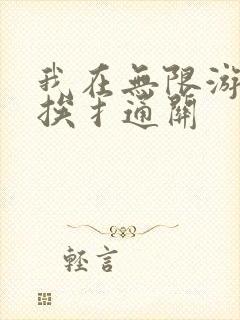 我在無限游
挨扌通關
輕言